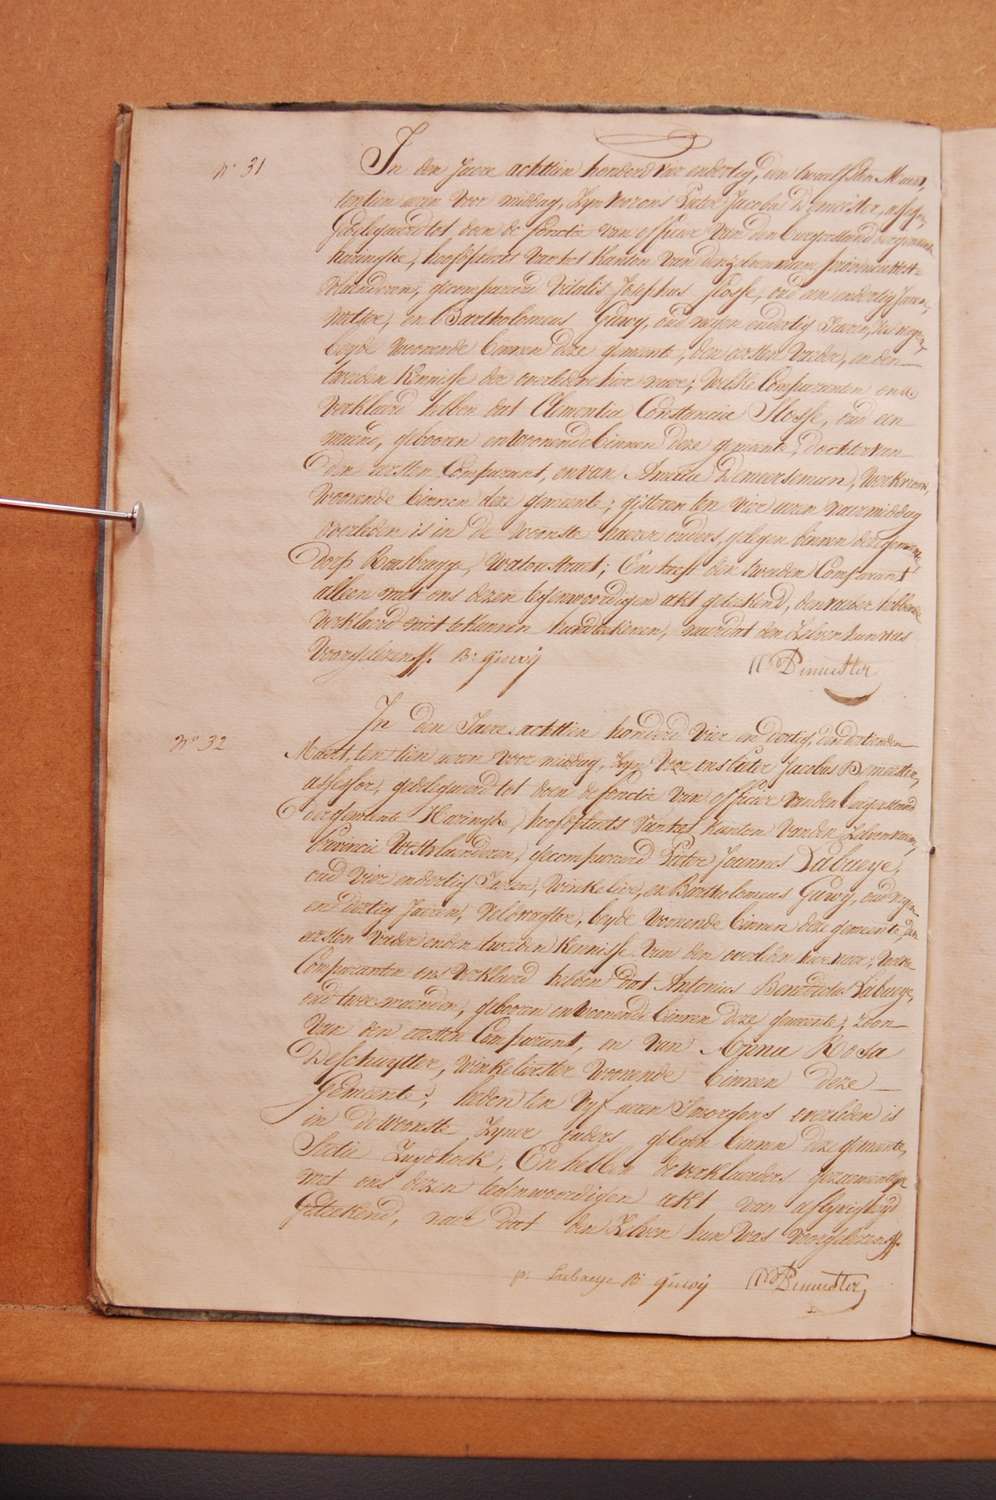 N° 31
In den Jaere achttien honderd vier en dertig, den twaelfsten Maert,
ten tien uren voor middag, Zyn voor ons Pieter Jacobus Demeester, assessor,
Gedelegueerd tot doen de fonctie van officier van den burgerstand der gemeente
haringhe, hoofdplaets van het kanton van den zelven naem, provincie west-
vlaenderen, gecompareerd Vitalis Josephus Flosse, oud een en dertig Jaren,
en Bartholomeus Guwy, oud negen en dertig Jaeren, veldwagter,
beyde woonende binnen deze gemeente, den eersten vader, en den
tweeden kennisse der overledene hier naer; Welke Comparanten ons
verklaerd hebben dat Clementia Constancia Flosse, oud een
maend, gebooren en woonende binnen deze gemeente, dochter van
den eersten Comparant, en van Amelia Demaeseman, werkvrouw,
woonende binnen deze gemeente; gisteren ten vier uren naermiddag
overleden is in de woonste haerer ouders, gelegen binnen deze gemeente,
Dorp Rousbrugge, Watoustraet; En heeft den tweeden Comparant
alleen met ons dezen tegenwoordigen akt geteekend, den vader hebbende
verklaerd niet te kunnen handteekenen, naer dat den Zelven hun was
voorgelezen. B: Guwij PJ Demeester
N° 32
In den Jaere achttien honderd vier en dertig, den dertienden
Maert, ten tien uren voor middag, Zyn voor ons Pieter Jacobus Demeester,
assessor, gedelegueerd tot doen de fonctie van officier van den burgerstand
der gemeente Haringhe, hoofdplaets van het kanton van den Zelven naem,
Provincie Westvlaenderen, gecompareerd Pieter Joannes Labaeye,
oud vier en dertig Jaren, Winkelier, en Bartholomeus Guwy, oud negen
en dertig Jaeren, Veldwagter, beyde woonende binnen deze gemeente, den
eersten vader en den tweeden kennisse van den overleden hier naer; welke
Comparanten ons verklaerd hebben dat Antonius Benedictus Labaeye,
oud twee maenden, gebooren en woonende binnen deze gemeente, zoon
van den eersten Comparant, en van Anna Rosa
Deschuytter, winkelierster woonende binnen deze
Gemeente; heden ten vyf uren Smorgens overleden is
in de woonste Zyner ouders gelegen binnen deze gemeente,
Sectie Zuydhoek; En hebben de verklaerders gezamentlyk
met ons dezen tegenwoordigen akt van aflyvigheyd
Geteekend, naer dat den Zelven hun was voorgelezen.
p: Labaeye B: Guwij PJ Demeester